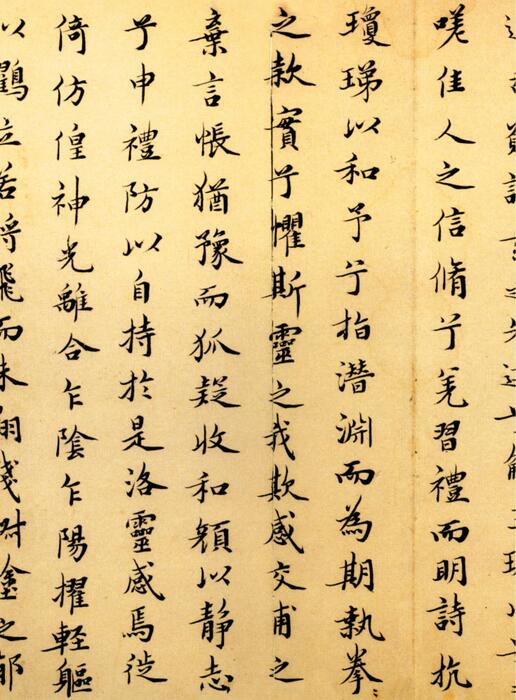 嗟佳人之信脩兮羌習禮而明詩抗
瓊珶以和予兮指潛淵而為期執拳
之款實兮懼斯靈之我欺感交甫之
棄言悵猶豫而狐疑收和顔以静志
兮申禮防以自持於是洛靈感焉徙
倚仿偟神光離合乍陰乍陽擢軽軀
以鶴立若将飛而未翔踐椒塗之郁